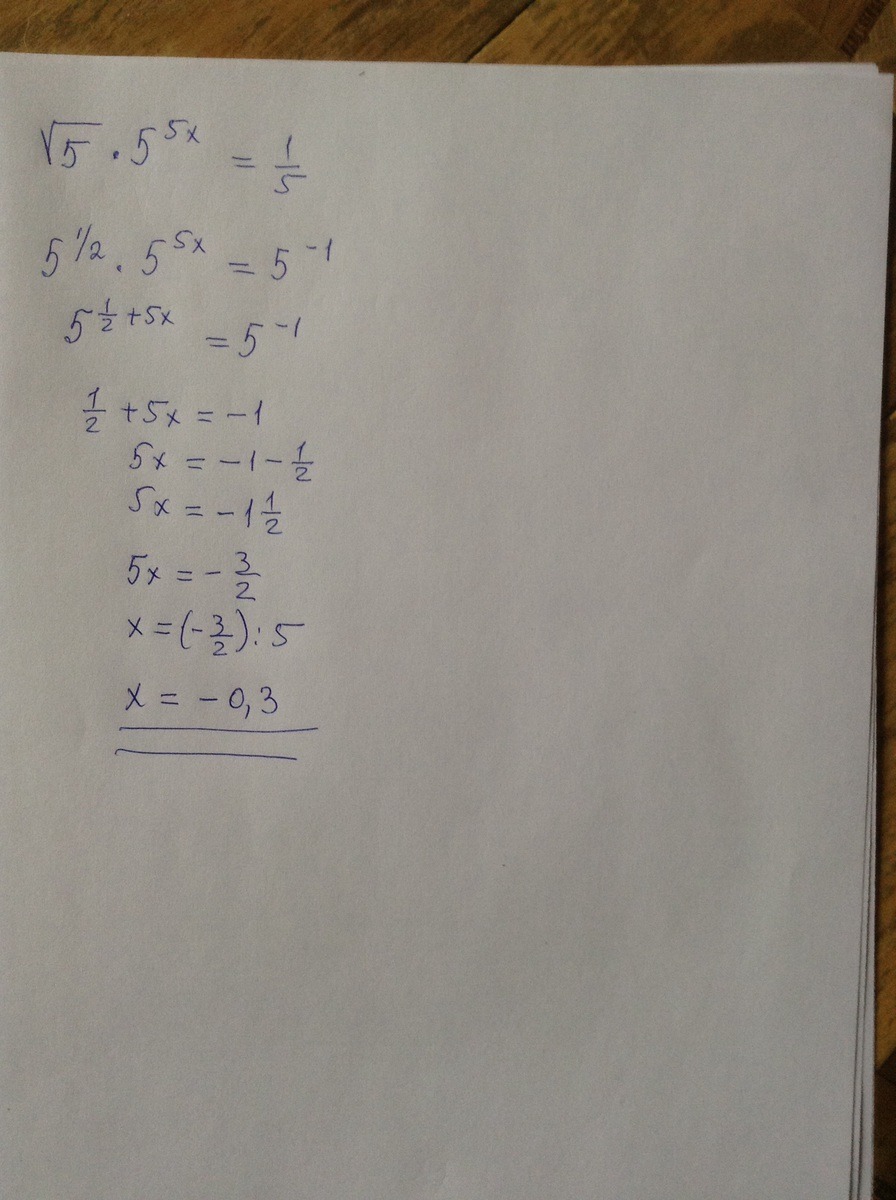 √5 · 5^5x = 1/5
5^1/2 · 5^5x = 5^-1
5^1/2+5x = 5^-1
1/2 + 5x = -1
5x = -1 - 1/2
5x = -1 1/2
5x = - 3/2
x = (-3/2) : 5
x = -0,3